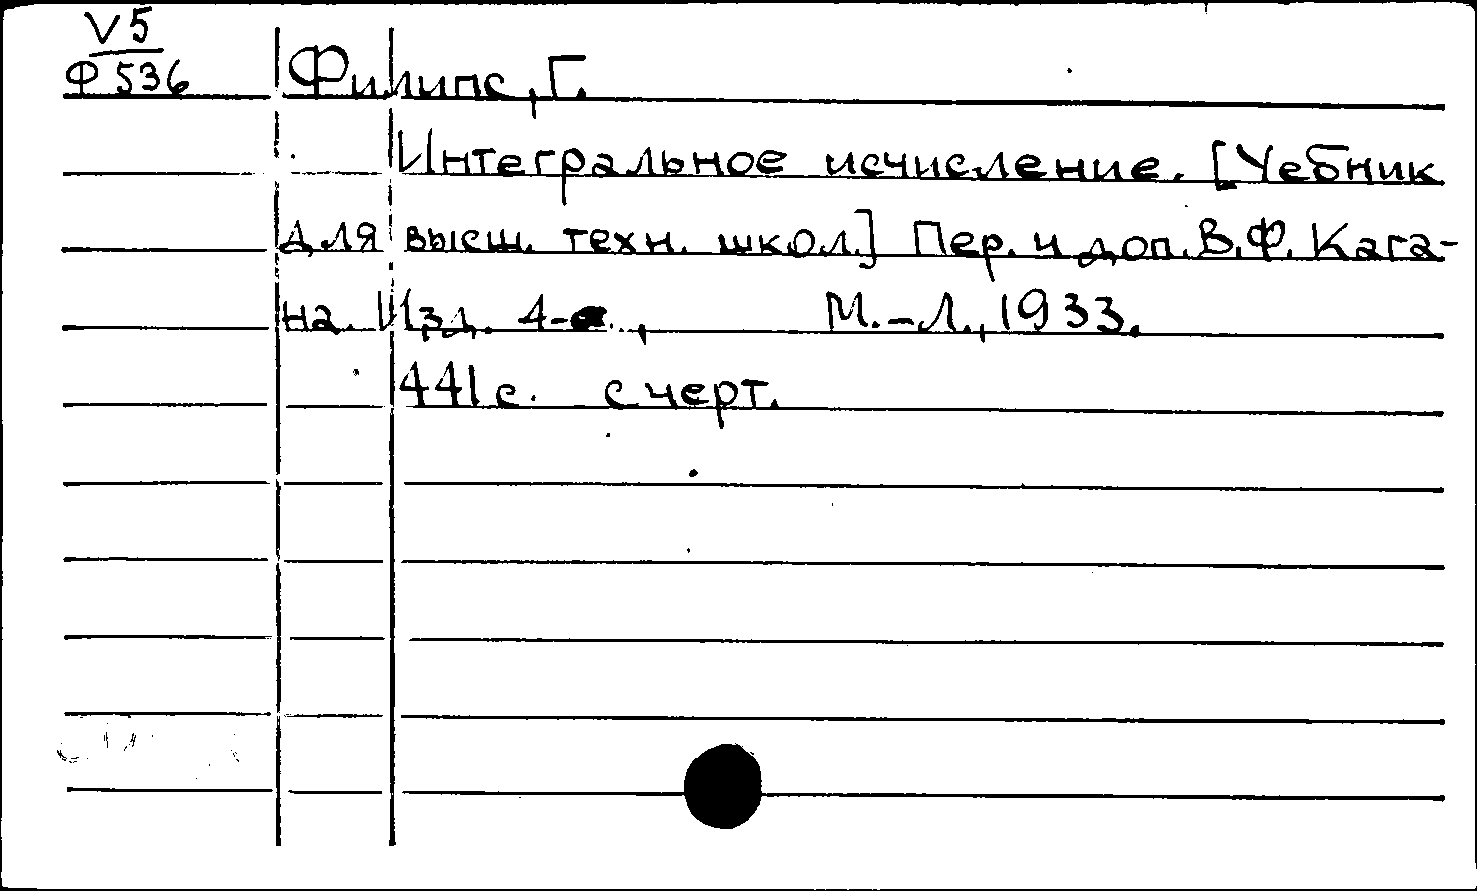 V5
Ф 536
Филипс, Г.
Интегральное исчисление. [Учебник
для высш. техн. школ.] Пер. и доп. В.Ф. Кага-
на. Изд. 4-е., М.-Л., 1933.
441 с. с черт.